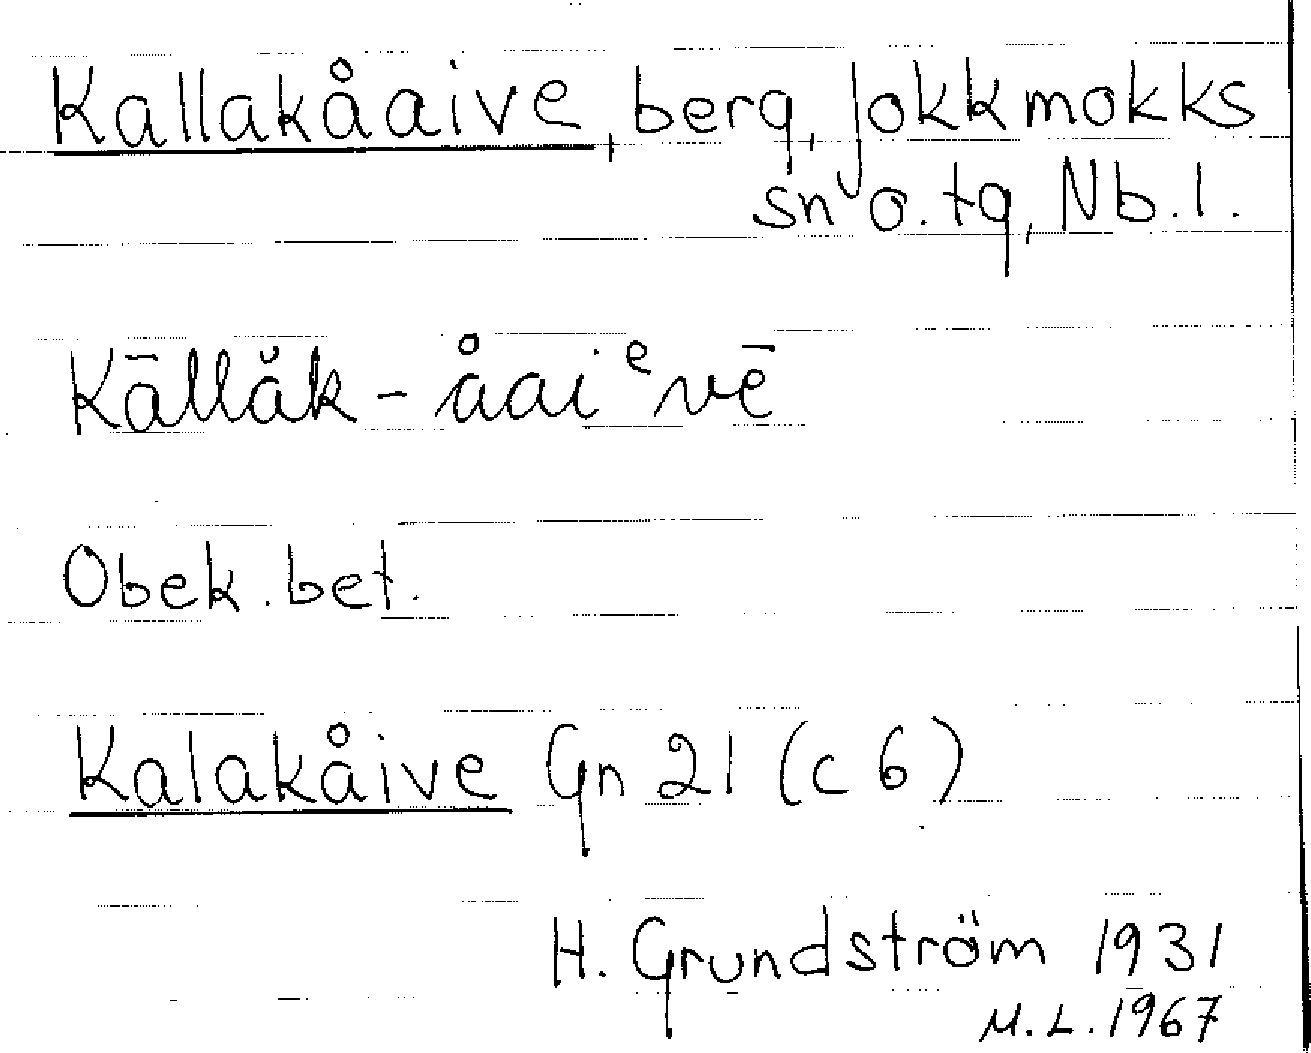 Kallakåaive, berg, Jokkmokks
sn o. tg, Nb.l.
Kāllăk-åaiᵉvē
Obek. bet.
Kalakåive Gn 21 (c 6)
H. Grundström 1931
M.L. 1967